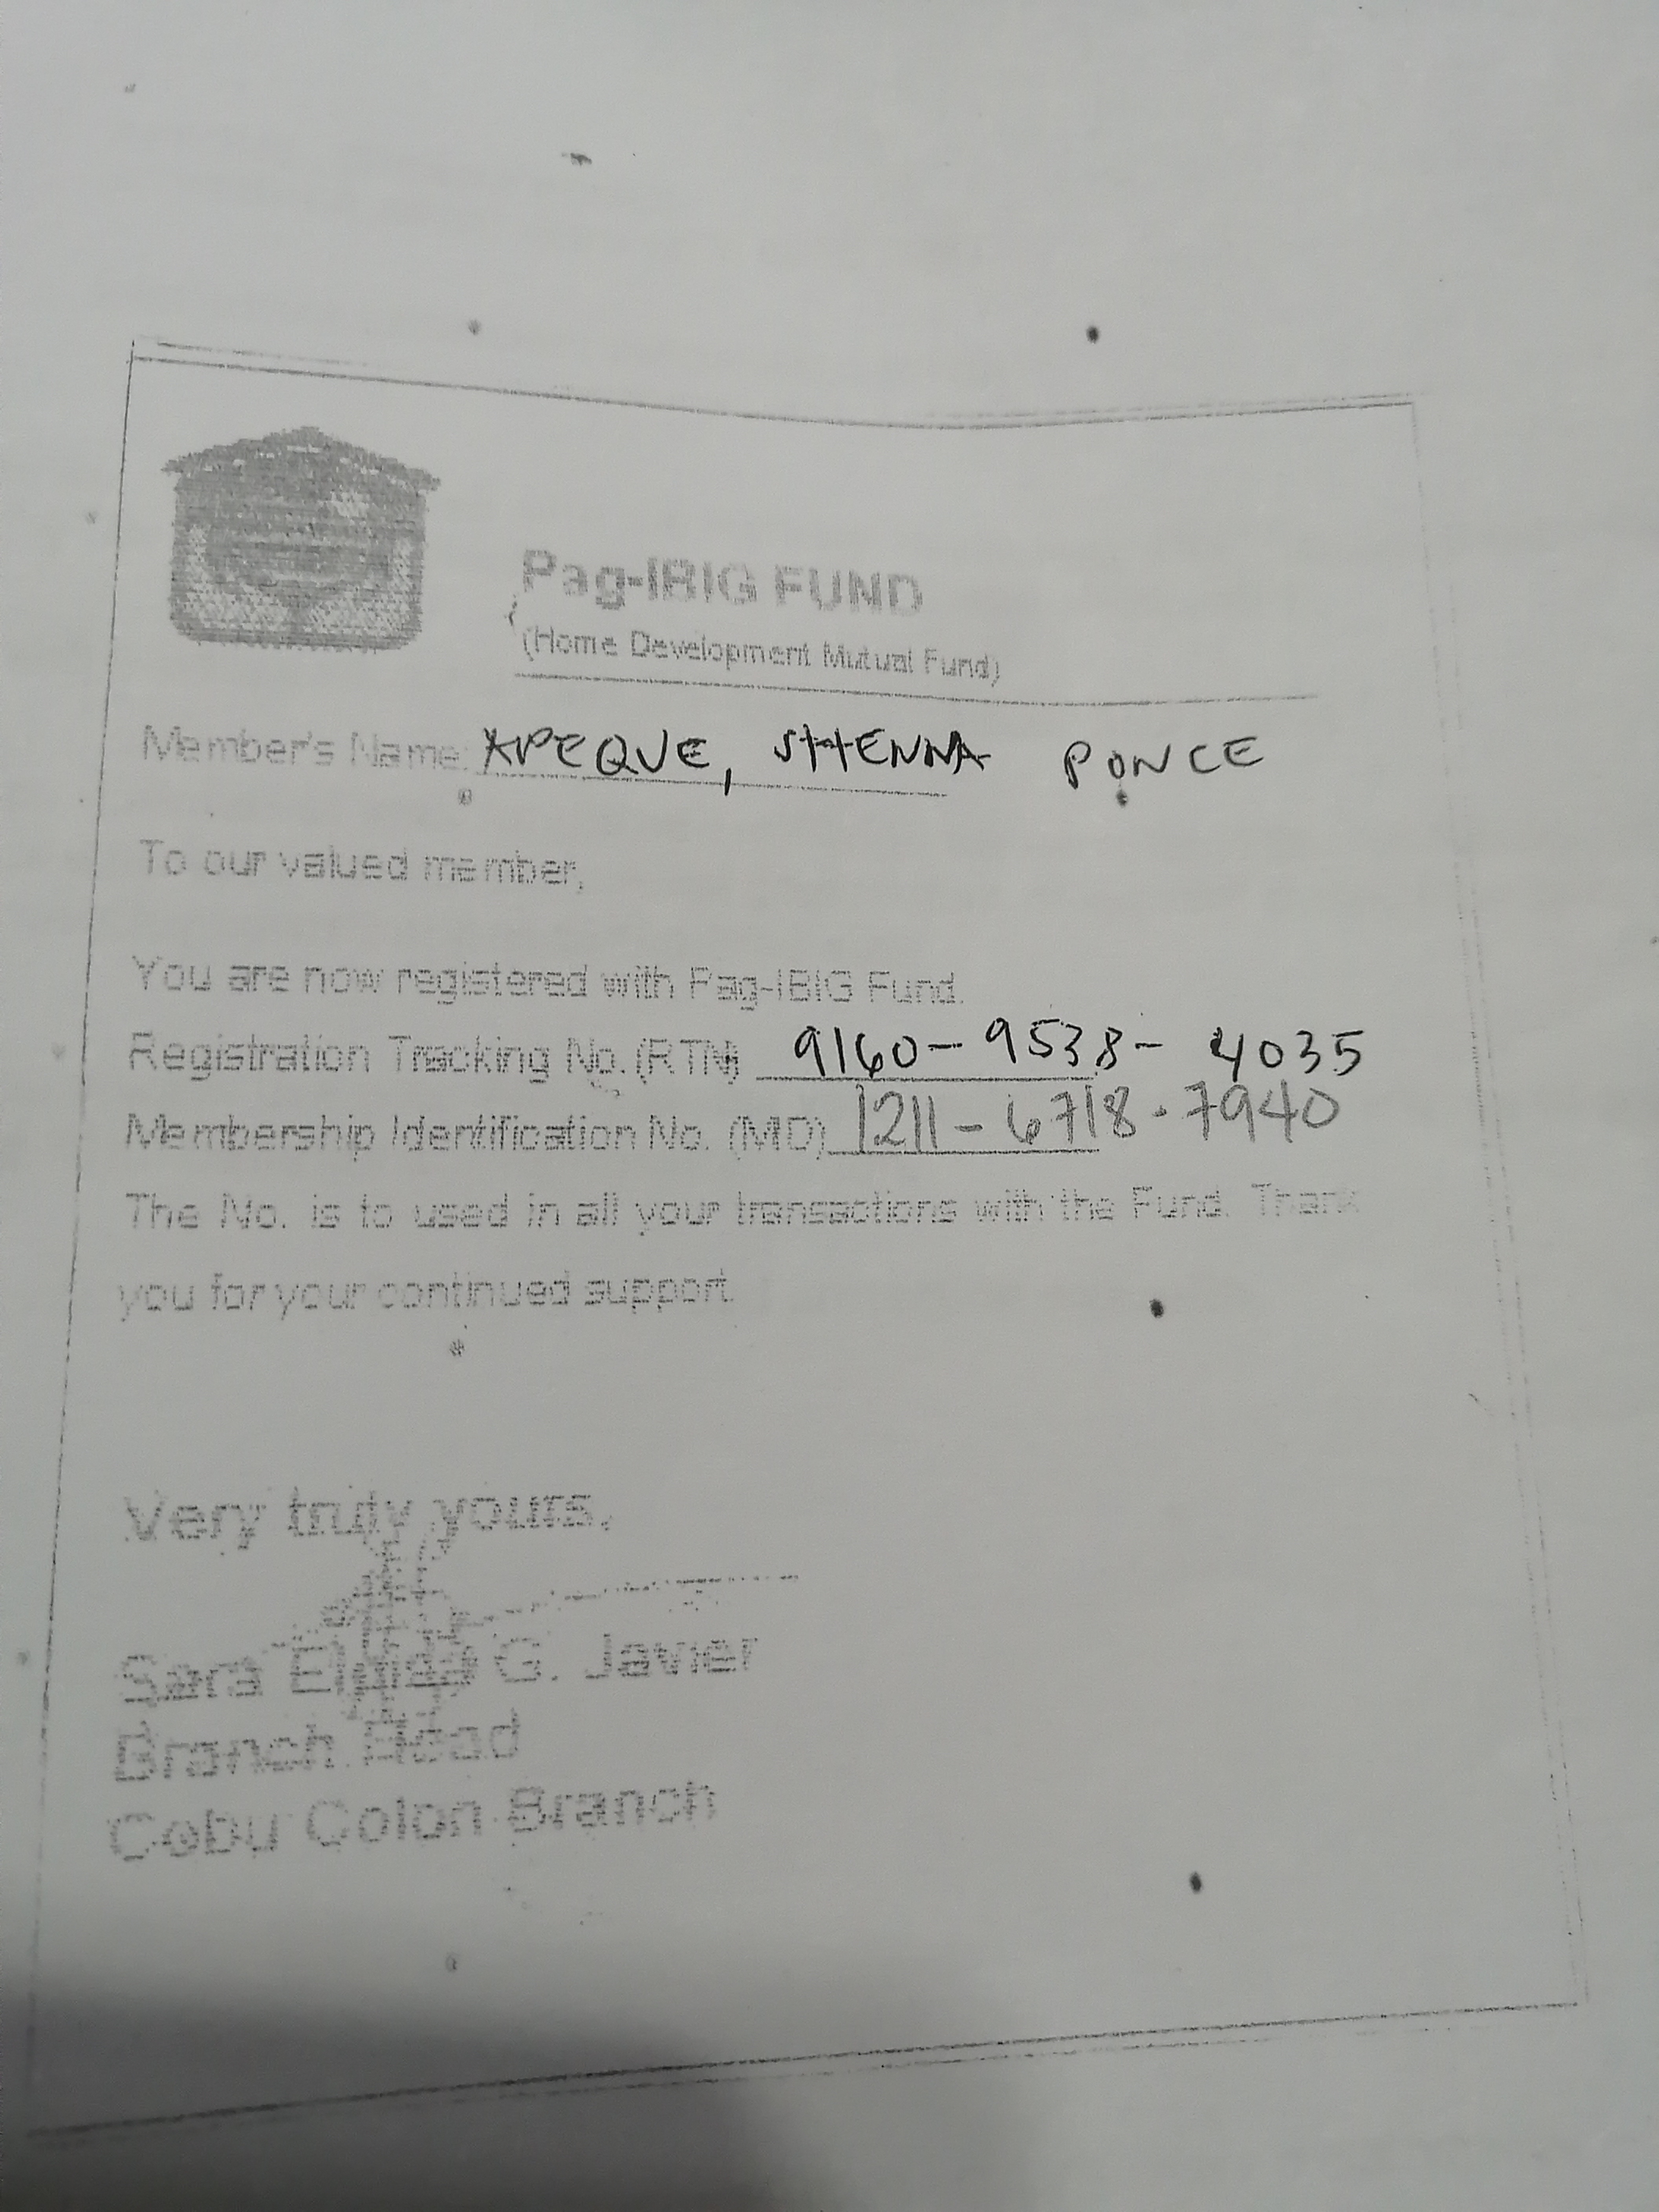 Pag-IBIG FUND
(Home Development Mutual Fund)
Member's Name: APEQUE, SHENNA PONCE
To our valued member,
You are now registered with Pag-IBIG Fund.
Registration Tracking No. (RTN) 9160-9538-4035
Membership Identification No. (MID) 1211-6718-7940
The No. is to used in all your transactions with the Fund. Thank
you for your continued support.
Very truly yours,
Sara G. Javier
Branch Head
Cebu Colon Branch